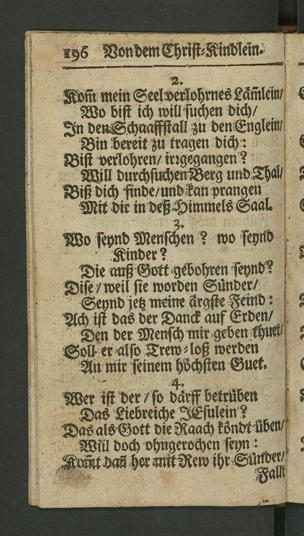 196 Von dem Christ-Kindlein.
2.
Kom̄ mein Seel verlohrnes Lām̄lein/
Wo bist ich will suchen dich/
In den Schaaffstall zu den Englein/
Bin bereit zu tragen dich:
Bist verlohren/ irrgegangen?
Will durchsuchen Berg und Thal/
Biß dich finde/ und kan prangen
Mit dir in deß Himmels Saal.
3.
Wo seynd Menschen? wo seynd
Kinder?
Die auß Gott gebohren seynd?
Dise/ weil sie worden Sünder/
Seynd jetz meine ärgste Feind:
Ach ist das der Danck auf Erden/
Den der Mensch mir geben thuet/
Soll er also Trew-loß werden
An mir seinem höchsten Guet.
4.
Wer ist der/ so darff betrüben
Das Liebreiche JEsulein?
Das als Gott die Raach köndt üben/
Will doch ohngerochen seyn:
Kom̄t dan̄ her mit Rew ihr Sünder/
Fallt